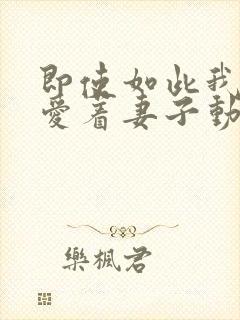 即使如此我
愛着妻子動
樂楓君